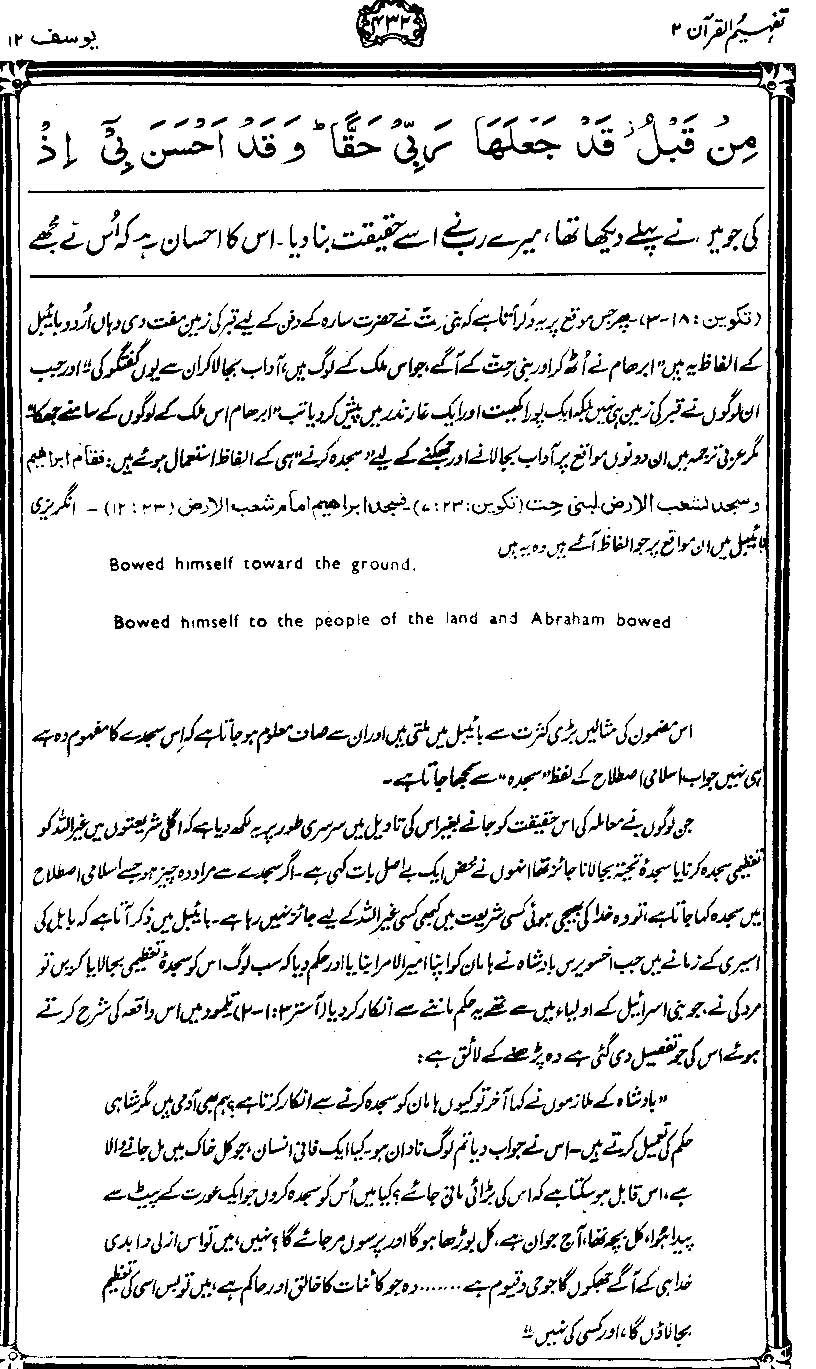 تفہیم القرآن ۲
۴۳۲
یوسف ۱۲
مِنْ قَبْلُ ۫ قَدْ جَعَلَهَا رَبِّیْ حَقًّا ؕ وَقَدْ اَحْسَنَ بِیْۤ اِذْ
کی جو میں نے پہلے دیکھا تھا، میرے رب نے اسے حقیقت بنا دیا۔ اس کا احسان ہے کہ اُس نے مجھے
(تکوین: ۱۸-۳)۔ پھر جس موقع پر یہ ذکر آتا ہے کہ بنی حِتّ نے حضرت سارہ کے دفن کے لیے قبر کی زمین مفت دی وہاں اُردو بائیبل
کے الفاظ یہ ہیں "ابرھام نے اُٹھ کر اور بنی حِتّ کے آگے، جو اس ملک کے لوگ ہیں، آداب بجا لا کر ان سے یوں گفتگو کی" اور جب
ان لوگوں نے قبر کی زمین ہی نہیں بلکہ ایک پورا کھیت اور ایک غار نذر میں پیش کر دیا تب "ابرھام اس ملک کے لوگوں کے سامنے جھکا"
مگر عربی ترجمہ میں ان دونوں مواقع پر آداب بجا لانے اور جھکنے کے لیے "سجدہ کرنے" ہی کے الفاظ استعمال ہوئے ہیں: فقام ابراھیم
وسجد لشعب الارض لبنی حت (تکوین: ۲۳:۷)۔ فسجد ابراھیم امام شعب الارض (۲۳: ۱۲) – انگریزی
بائیبل میں ان مواقع پر جو الفاظ آئے ہیں وہ یہ ہیں
Bowed himself toward the ground.
Bowed himself to the people of the land and Abraham bowed
اس مضمون کی مثالیں بڑی کثرت سے بائیبل میں ملتی ہیں اور ان سے صاف معلوم ہو جاتا ہے کہ اِس سجدے کا مفہوم وہ ہے
ہی نہیں جو اب اسلامی اصطلاح کے لفظ "سجدہ" سے سمجھا جاتا ہے۔
جن لوگوں نے معاملہ کی اس حقیقت کو جانے بغیر اس کی تاویل میں سرسری طور پر یہ لکھ دیا ہے کہ اگلی شریعتوں میں غیر اللہ کو
تعظیمی سجدہ کرنا یا سجدۂ تحیۃ بجا لانا جائز تھا انہوں نے محض ایک بے اصل بات کہی ہے۔ اگر سجدے سے مراد وہ چیز ہو جسے اسلامی اصطلاح
میں سجدہ کہا جاتا ہے، تو وہ خدا کی بھیجی ہوئی کسی شریعت میں کبھی کسی غیر اللہ کے لیے جائز نہیں رہا ہے۔ بائیبل میں ذکر آتا ہے کہ بابل کی
اسیری کے زمانے میں جب اخسویرس بادشاہ نے ہامان کو اپنا امیر الامرا بنایا اور حکم دیا کہ سب لوگ اس کو سجدۂ تعظیمی بجا لایا کریں تو
مردکی نے، جو بنی اسرائیل کے اولیاء میں سے تھے یہ حکم ماننے سے انکار کر دیا (آستر ۳: ۱-۲) تلمود میں اس واقعہ کی شرح کرتے
ہوئے اس کی جو تفصیل دی گئی ہے وہ پڑھنے کے لائق ہے:
"بادشاہ کے ملازموں نے کہا آخر تو کیوں ہامان کو سجدہ کرنے سے انکار کرتا ہے؟ ہم بھی آدمی ہیں مگر شاہی
حکم کی تعمیل کرتے ہیں۔ اس نے جواب دیا تم لوگ نادان ہو۔ کیا ایک فانی انسان، جو کل خاک میں مل جانے والا
ہے، اس قابل ہو سکتا ہے کہ اس کی بڑائی مانی جائے؟ کیا میں اُس کو سجدہ کروں جو ایک عورت کے پیٹ سے
پیدا ہوا، کل بچہ تھا، آج جوان ہے، کل بوڑھا ہو گا اور پرسوں مر جائے گا؟ نہیں، میں تو اس ازلی و ابدی
خدا ہی کے آگے جھکوں گا جو حی و قیوم ہے ........ وہ جو کائنات کا خالق اور حاکم ہے، میں تو بس اسی کی تعظیم
بجا لاؤں گا، اور کسی کی نہیں۔"